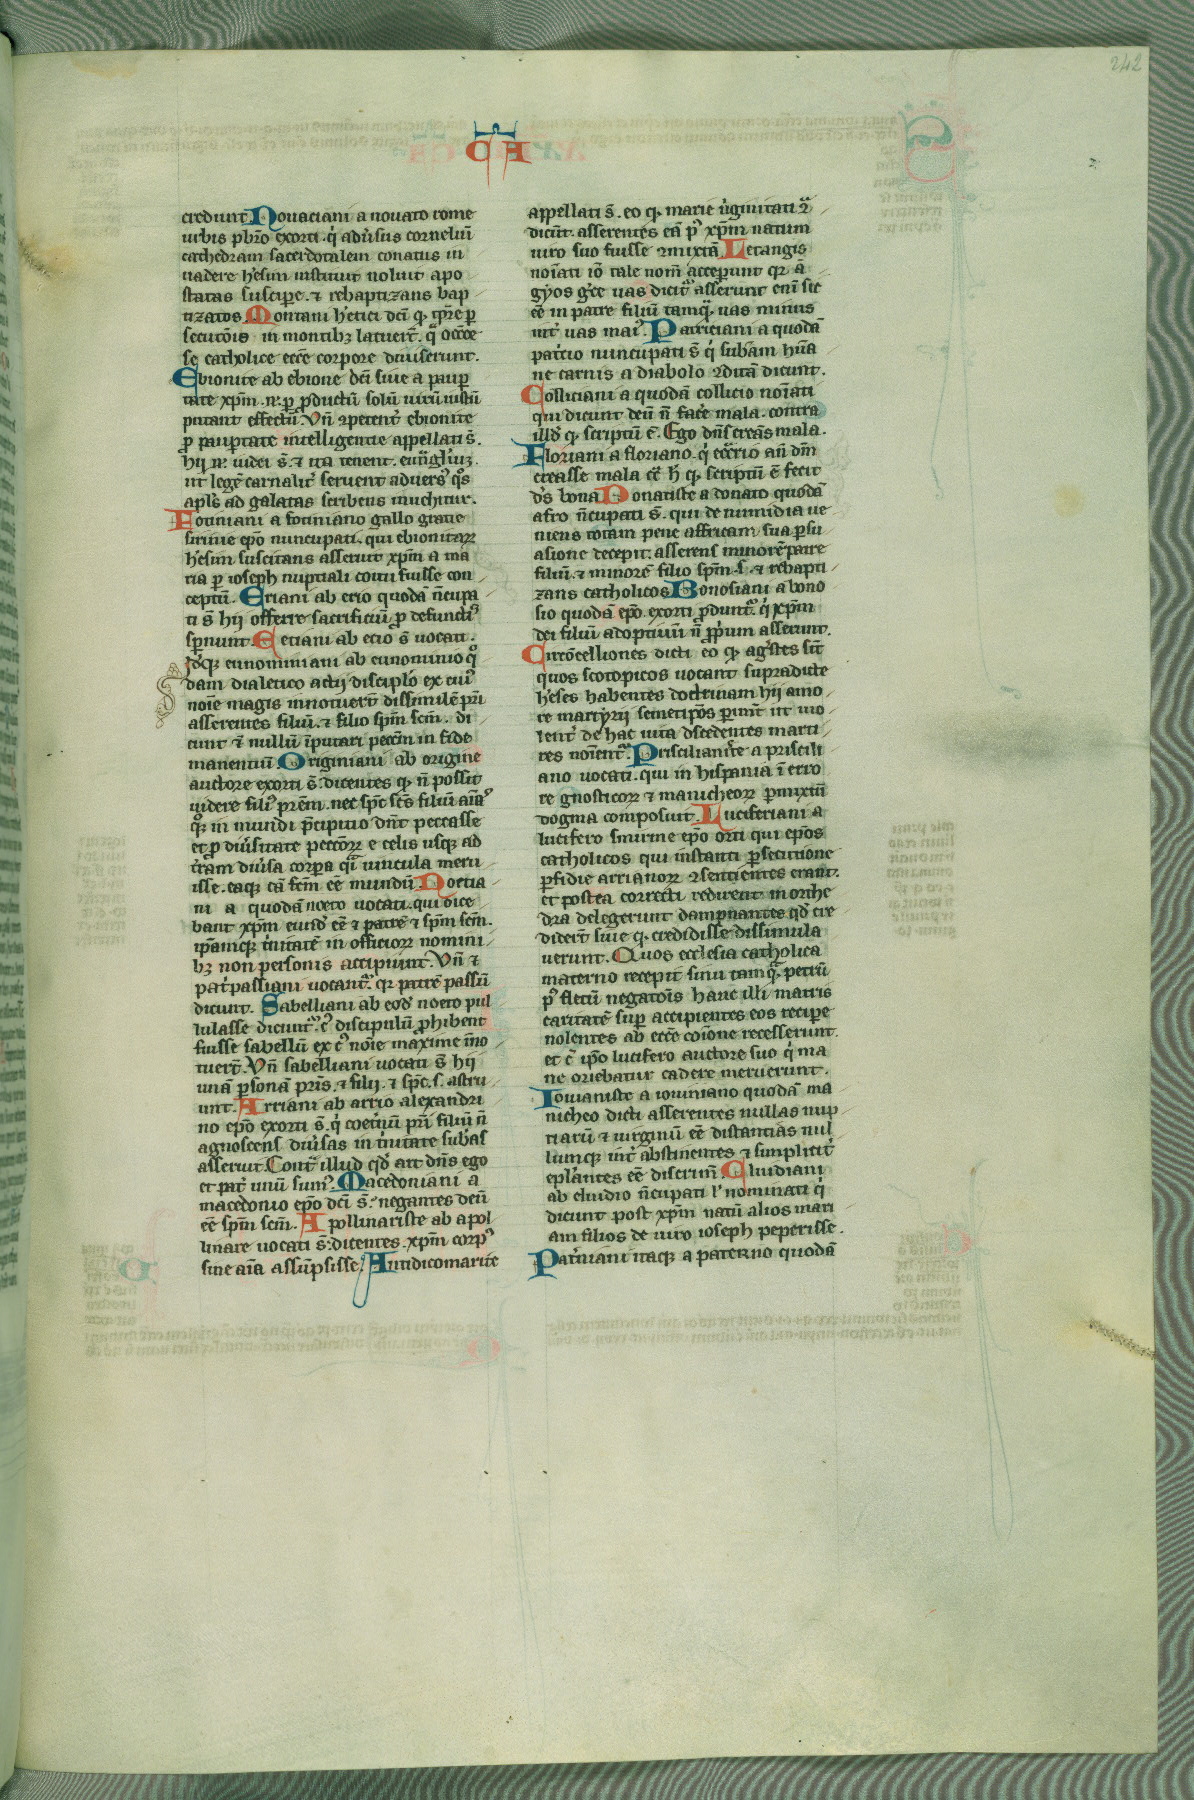 242
CA
credunt. Nouaciani a nouato rome
urbis pb̄ro exorti. q̇ adũsus corneliū
cathedram sacerdotalem conatus in
uadere h̓esim instituit noluit apo
statas suscip̱e. ⁊ rebaptizans bap
tizatos. Montani h̓etici dc̄i ꝙ tp̄re ꝑ
secutōis in montibꝫ latuer̄t. q̄ occ̄oe
se catholice ecc̄e corpore diuiserunt.
Ebionite ab ebione dc̄i siue a paup̱
tate xp̄m .n̄. ꝑ ꝓductū̄ solū uirū iustū
putant effectū. Vn̄ ꝯpetent̓ ebionite
ꝓ paup̱tate intelligentie appellati s̄.
hij n̄. iudei s̄. ⁊ ita tenent. euāgliūꝫ.
ut legē carnalit̓ seruent aduers̓ q̊s
apl̄s ad galatas scribens inuehitur.
Fotiniani a fotiniano gallo gratie
sirmie ep̄o nuncupati. qui ebionitaꝝ
h̓esim suscitans asseruit xp̄m a ma
ria ꝑ ioseph nuptiali coitu fuisse con
ceptū. Eriani ab erio quodā n̄cupa
ti s̄ hij offerre sacrificiū ꝓ defunctis
sꝑnunt. Eetiani ab ecio s̄ uocati.
Idēꝫ eunominiani ab eunominio q̊
dam dialetico actij disciplo ex cui̓
noīe magis innotuer̄t dissimilē pr̄i
asserentes filiū. ⁊ filio sp̄m sc̄m. di
cunt ⁊ nullū īputari pecc̄m in fide
manentiū Originiani ab origine
auctore exorti s̄. dicentes ꝙ n̄ possit
uidere fili̓ prēm. nec sp̄c sc̄s filiū aīas
q̊ꝫ in mundi p̄cipitio dn̄t peccasse
et ꝓ diũsitate peccōꝝ e celis usqꝫ ad
t̓ram diũsa corꝑa q̄i uincula meru
isse. eaqꝫ cā fc̄m eē mundū. Noetia
ni a quodā noeto uocati. qui dice
bant xp̄m eund̓ eē ⁊ patrē ⁊ sp̄m sc̄m.
ip̄amqꝫ t̓nitatē in officioꝝ nomini
bꝫ non personis accipiunt. Vn̄ ⁊
pat̓passiani uocant̓. qꝛ patrē passū
dicunt. Sabelliani ab eod̓ noeto pul
lulasse dicunt̓. c̓ discipulū ꝓhibent
fuisse sabellū ex c̓ noīe maxime īno
tuer̄t. Vn̄ sabelliani uocati s̄ hij
unā ꝑsonā pr̄is. ⁊ filij. ⁊ sp̄c. s̄. astru
unt. Arriani ab arrio alexandri
no ep̄o exorti s̄. q̇ coet̓nū pr̄i filiū n̄
agnoscens diũsas in t̓nitate subās
asseruit. Cont̓ illud qd̓ ait dn̄s ego
et pat̓ unū sum̓. Macedoniani a
macedonio ep̄o dc̄i s̄. negantes deū
eē sp̄m sc̄m. Apollinariste ab apol
linare uocati s̄. dicentes. xp̄m corp̓
sine aīa assūpsisse. Antidicomarite
appellati s̄. eo ꝙ marie ũginitati ꝯ̄
dicūt. asserentes eā p̓ xp̄m natum
uiro suo fuisse ꝯmixtā. Letangis
noīati iō tale nom̄ acceperunt qꝛ a
gyos gr̄ce uas dicit̓ asserunt enī sic
eē in patre filiū tamꝙ̄ uas minus
int̓ uas mai̓. Patriciani a quodā
patricio nuncupati s̄ q̇ subām hūa
ne carnis a diabolo ꝯditā dicunt.
Colliciani a quodā collicio noīati
qui dicunt deū n̄ face̓ mala. contra
illd̓ ꝙ scriptū ē. Ego dn̄s creās mala.
Floriani a floriano. q̇ ecc̄rio an̄ dm̄
creasse mala cē h̓ ꝙ scriptū ē fecit
d̓s bona. Donatiste a donato quodā
afro n̄cupati s̄. qui de numidia ue
niens totam pene affricam sua ꝑsu
asione decepit. asserens minorē patre
filiū. ⁊ minorē filio sp̄m .s̄. ⁊ rebapti
zans catholicos. Bonosiani a bono
sio quodā ep̄o exorti ꝓdunt̓. q̇ xp̄m
dei filiū adoptiuū n̄ ꝓprium asserunt.
Circōcelliones dicti eo ꝙ ag̓stes sīt
quos scotopicos uocant supradicte
h̓eses habentes doctrinam hij amo
re martyrij semetip̄os ꝑimūt ut uio
lent̓ de hac uita dscedentes marti
res noīent̓. Prisciliani̓te a priscili
ano uocati. qui in hispania ī erro
re gnosticoꝝ ⁊ manicheoꝝ ꝑmixtū
dogma composuit. Luciferiani a
lucifero smirne ep̄o orti qui ep̄os
catholicos qui instanti ꝑsecutione
ꝑfidie arrianoꝝ ꝯsentientes erant.
et postea correcti redirent in orthe
dra delegerunt dampnantes qd̓ cre
dider̄t siue ꝙ credidisse dissimula
uerunt. Quos ecclesia catholica
materno recepit sinu tamꝙ̄ petrū
p̓ fletū negatōis hanc illi matris
caritatē suꝑ accipientes eos recipe
nolentes ab ecc̄e coīone recesserunt.
et c̄ ip̄o lucifero auctore suo q̇ ma
ne oriebatur cadere meruerunt.
Iouianiste a iouiniano quodā ma
nicheo dicti asserentes nullas nup
tiarū ⁊ uirginū eē distantias nul
lumqꝫ int̓ abstinentes ⁊ simplicit̓
epl̄antes eē discrim̄. Eluidiani
ab eluidio n̄cupati l̓ nominati q̇
dicunt post xp̄m natū alios mari
am filios de uiro ioseph peperisse.
Pat̓niani itaqꝫ a paterno quodā